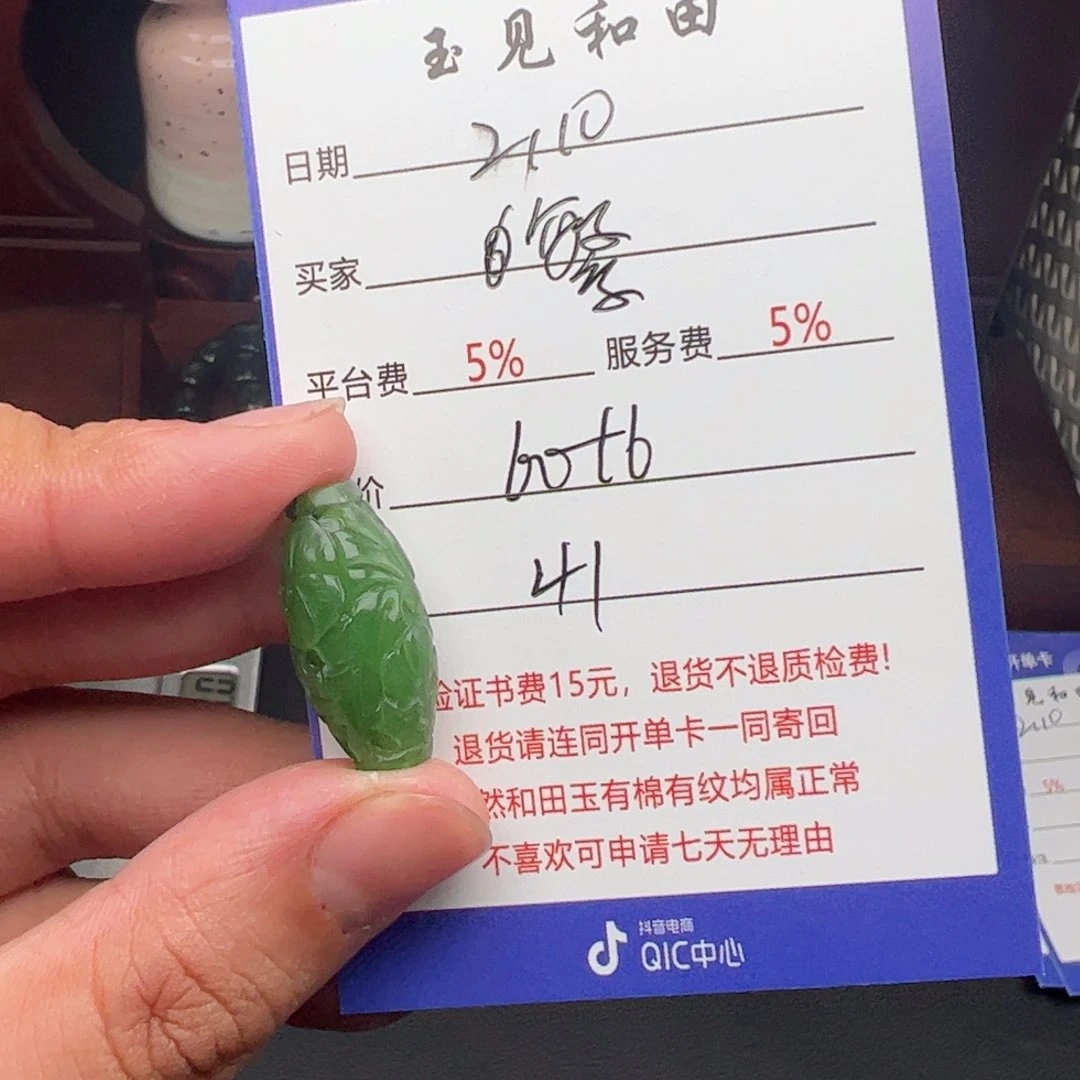 玉见和田
日期 2.10
买家
平台费 5% 服务费 5%
价 600+6
41
验证书费15元，退货不退质检费！
退货请连同开单卡一同寄回
然和田玉有棉有纹均属正常
不喜欢可申请七天无理由
抖音电商
QIC中心
开单卡
见和
2.10
5%